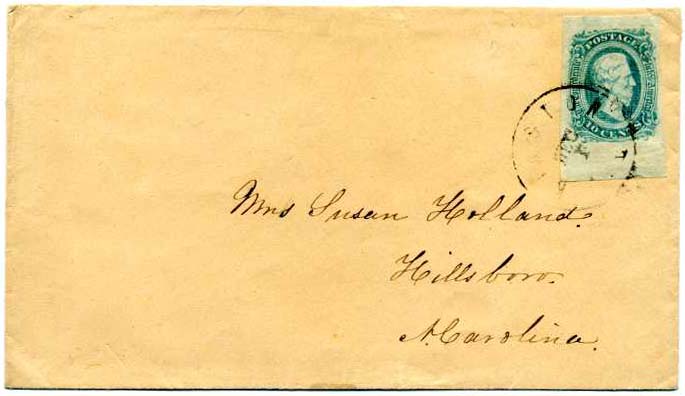 POSTAGE
10 CENTS
Mrs Susan Holland.
Hillsboro.
N. Carolina.